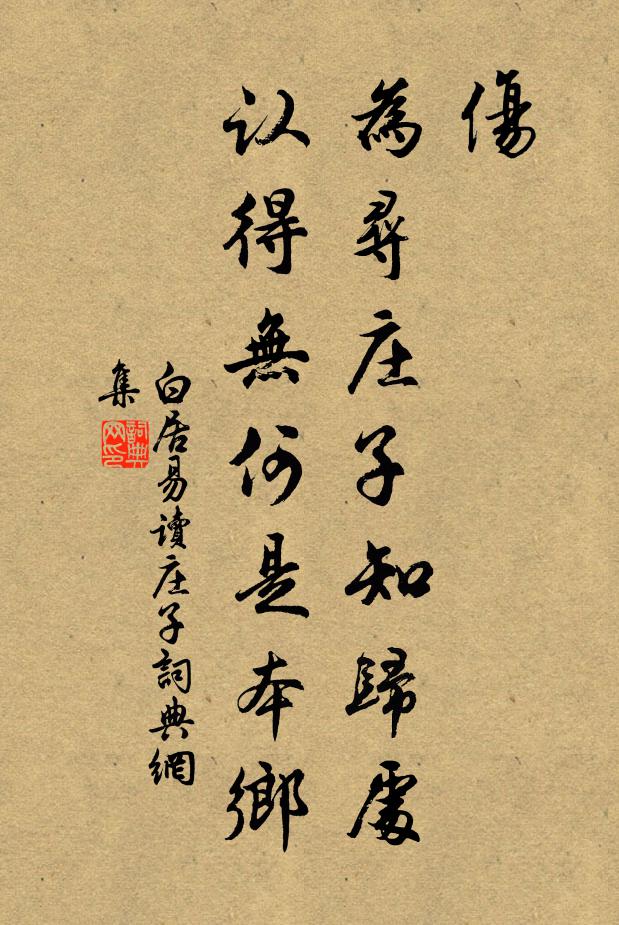 傷
為尋庄子知歸處
认得無何是本鄉
白居易讀庄子詞典網
集
詞典
网印